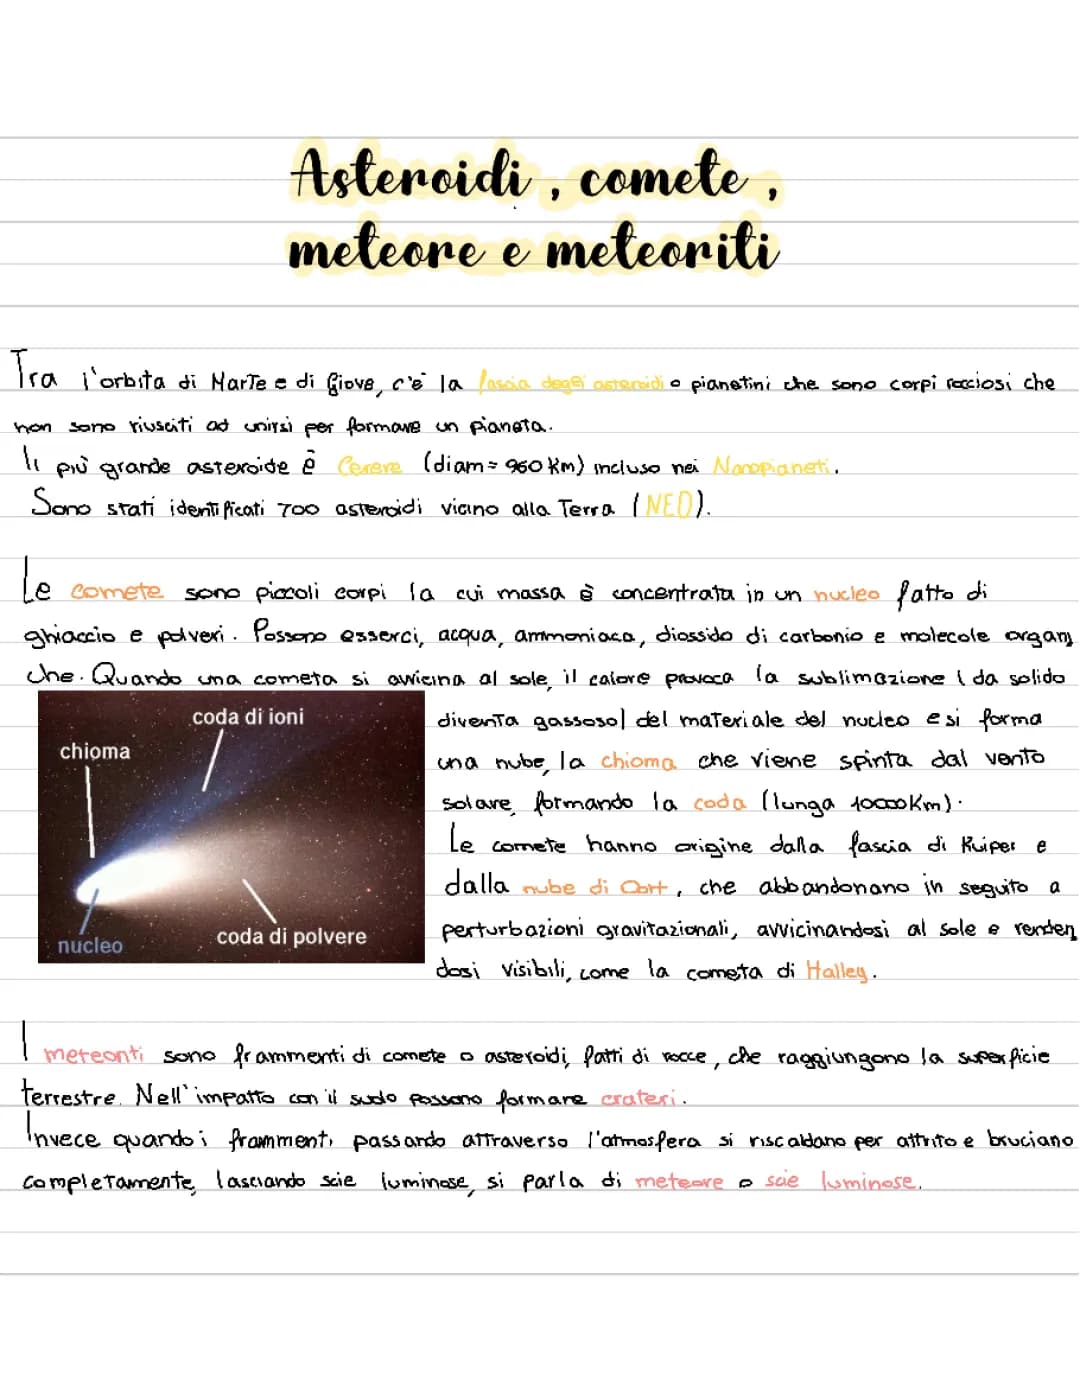 Asteroidi, comete,
meteore e meteoriti
Tra l'orbita di Marte e di Giove, c'è la fascia degli asteroidi o pianetini che sono corpi rocciosi che
non sono riusciti ad unirsi per formare un pianeta.
Il più grande asteroide è Cerere (diam= 960 Km) incluso nei Nanopianeti.
Sono stati identificati 700 asteroidi vicino alla Terra (NEO).
Le comete sono piccoli corpi la cui massa è concentrata in un nucleo fatto di
ghiaccio e polveri. Possono esserci, acqua, ammoniaca, diossido di carbonio e molecole organi
che. Quando una cometa si avvicina al sole, il calore provoca la sublimazione (da solido
diventa gassoso) del materiale del nucleo e si forma
una nube, la chioma che viene spinta dal vento
solare, formando la coda (lunga 10000Km).
Le comete hanno origine dalla fascia di Kuiper e
dalla nube di Oort, che abbandonano in seguito a
perturbazioni gravitazionali, avvicinandosi al sole e renden
dosi visibili, come la cometa di Halley.
coda di ioni
chioma
nucleo
coda di polvere
I meteoriti sono frammenti di comete o asteroidi, fatti di rocce, che raggiungono la superficie
terrestre. Nell'impatto con il suolo possono formare crateri.
Invece quando i frammenti passando attraverso l'atmosfera si riscaldano per attrito e bruciano
completamente, lasciando scie luminose, si parla di meteore o scie luminose.